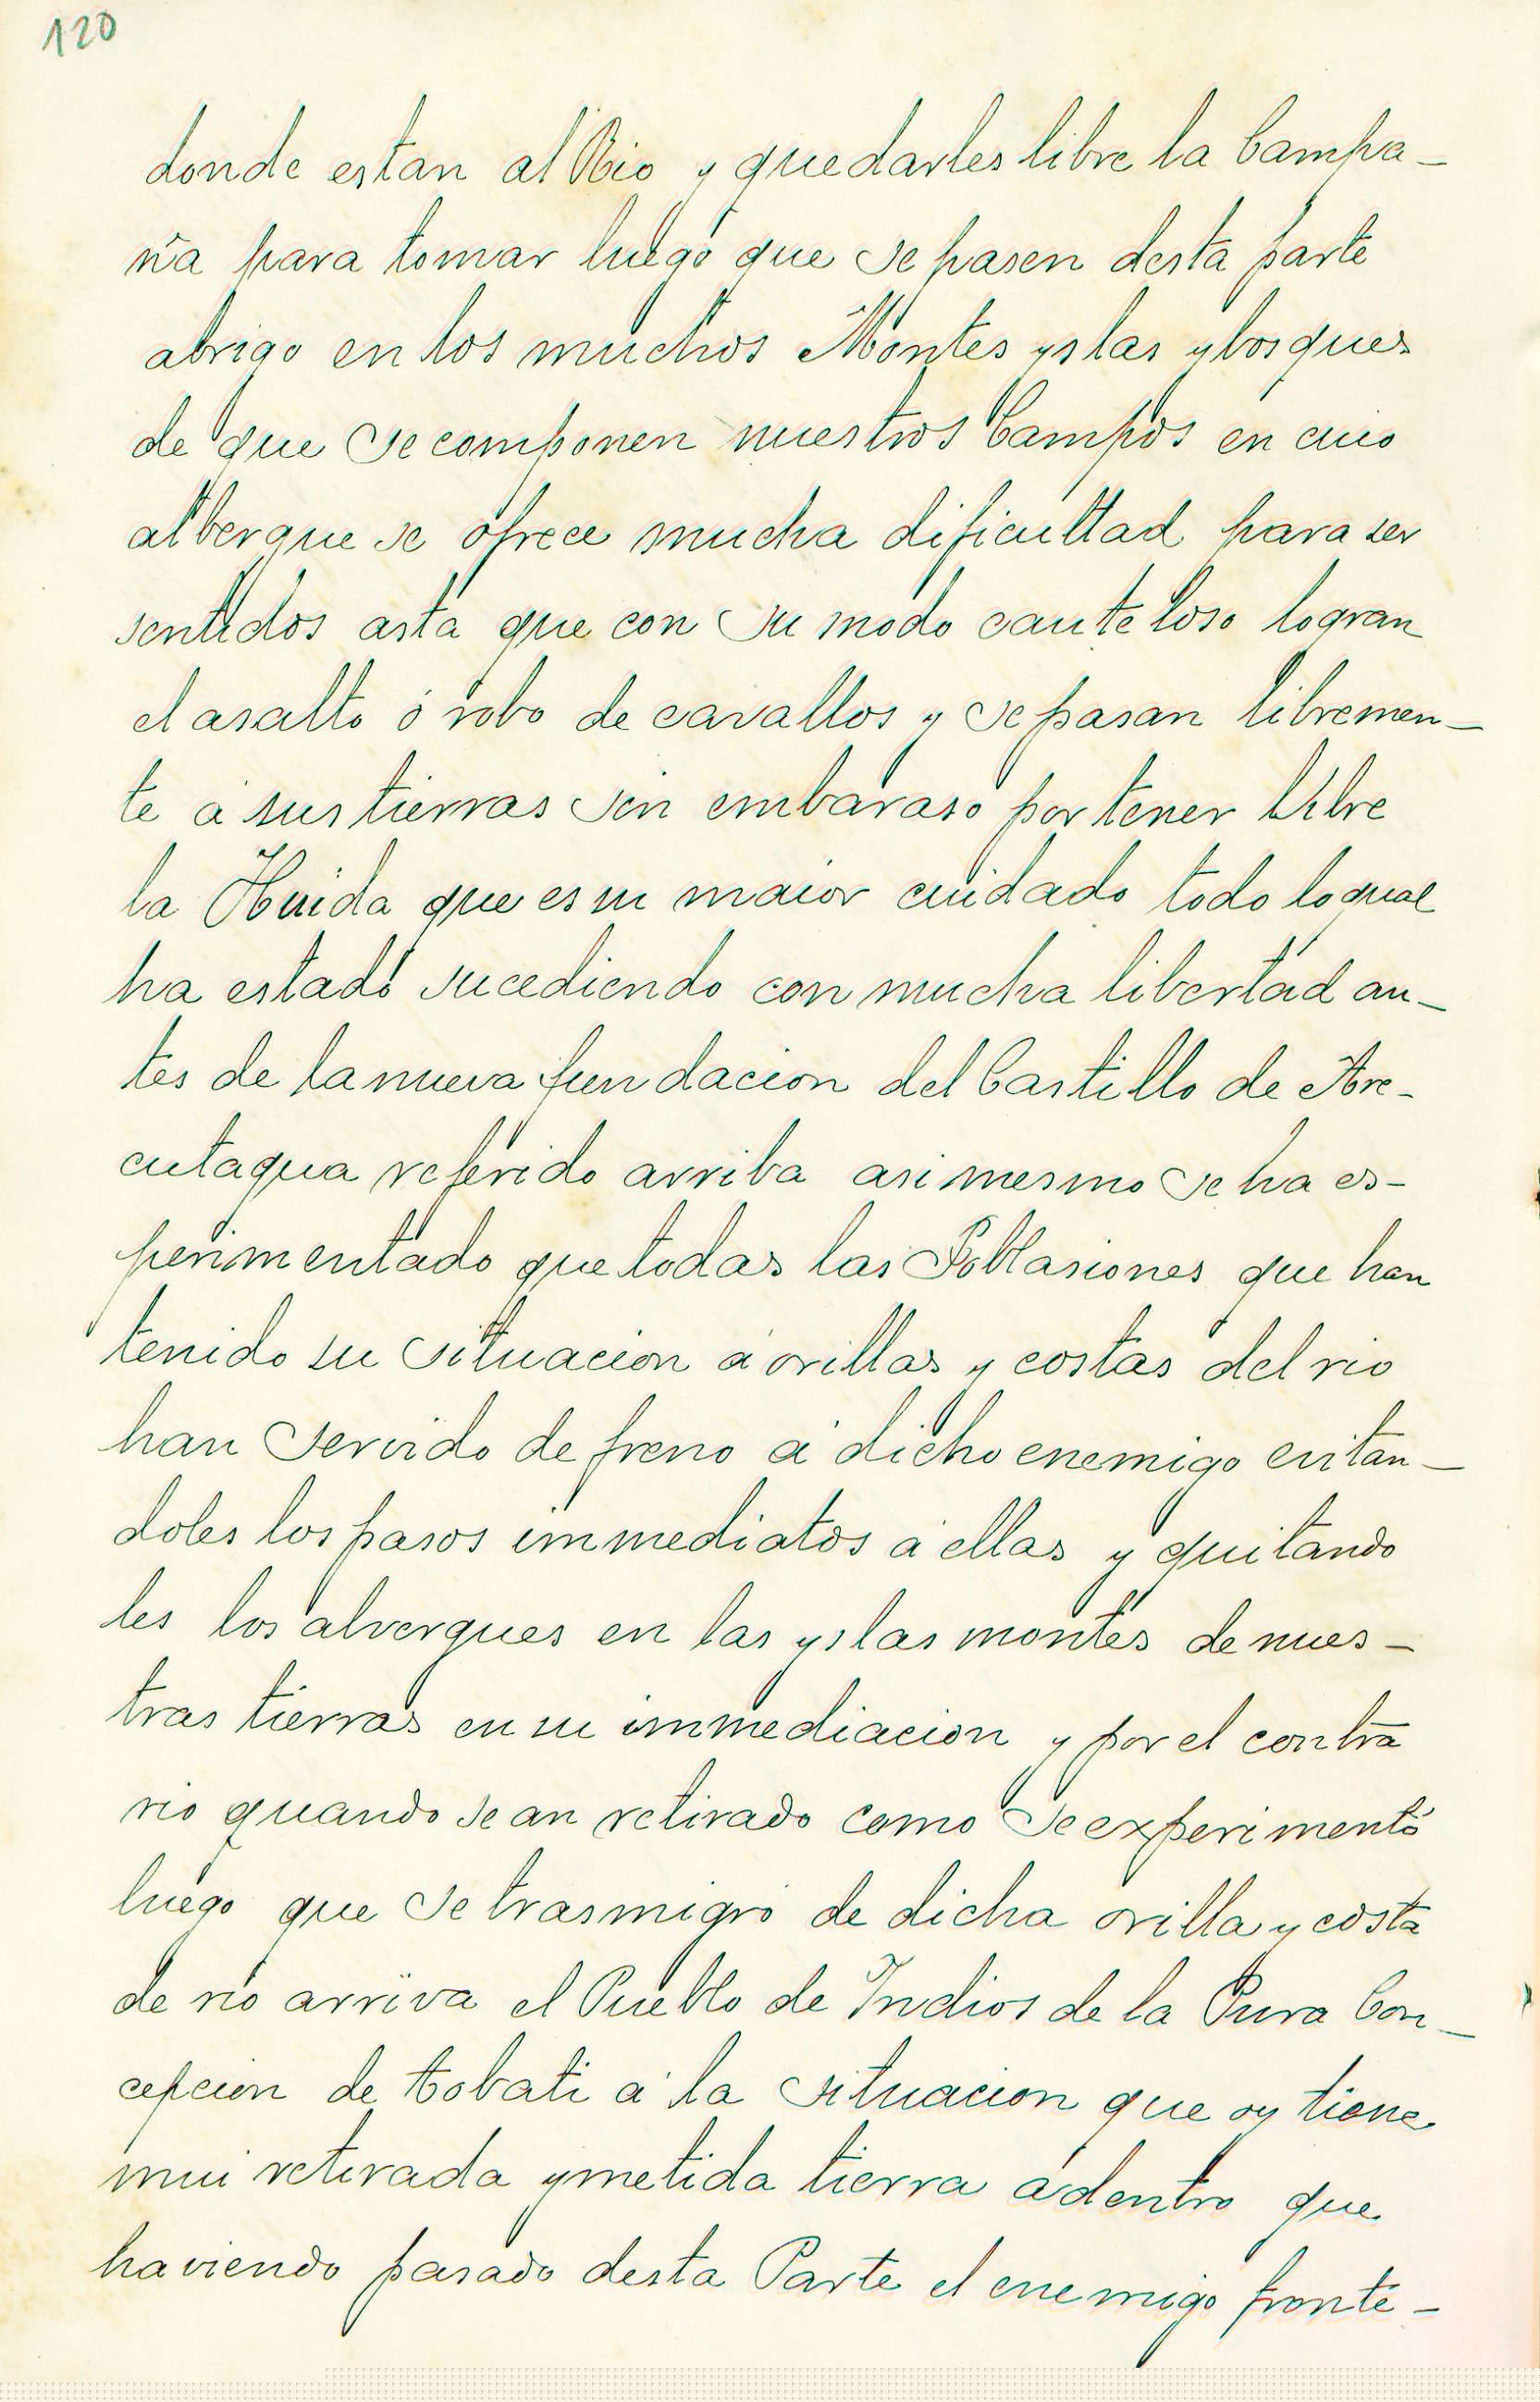 120
donde estan al Rio y quedarles libre la Campa-
ña para tomar luego que se pasen desta parte
abrigo en los muchos Montes yslas y bosques
de que se componen nuestros Campos en cuio
albergue se ofrece mucha dificultad para ser
sentidos asta que con su modo cauteloso logran
el asalto ó robo de cavallos y se pasan libremen-
te a sus tierras sin embaraso por tener libre
la Huida que es su maior cuidado todo lo qual
ha estado sucediendo con mucha libertad an-
tes de la nueva fundacion del Castillo de Are-
cutagua referido arriba asi mesmo se ha es-
perimentado que todas las Poblasiones que han
tenido su situacion a orillas y costas del rio
han servido de freno a dicho enemigo evitan-
doles los pasos immediatos a ellas y quitando
les los alvergues en las yslas montes de nues-
tras tierras en su immediacion y por el contra
rio quando se an retirado como se experimentó
luego que se trasmigró de dicha orilla y costa
de rio arriva el Pueblo de Indios de la Pura Con-
cepcion de tobati a la situacion que oy tiene
mui retirada y metida tierra adentro que
haviendo pasado desta Parte el enemigo fronte-